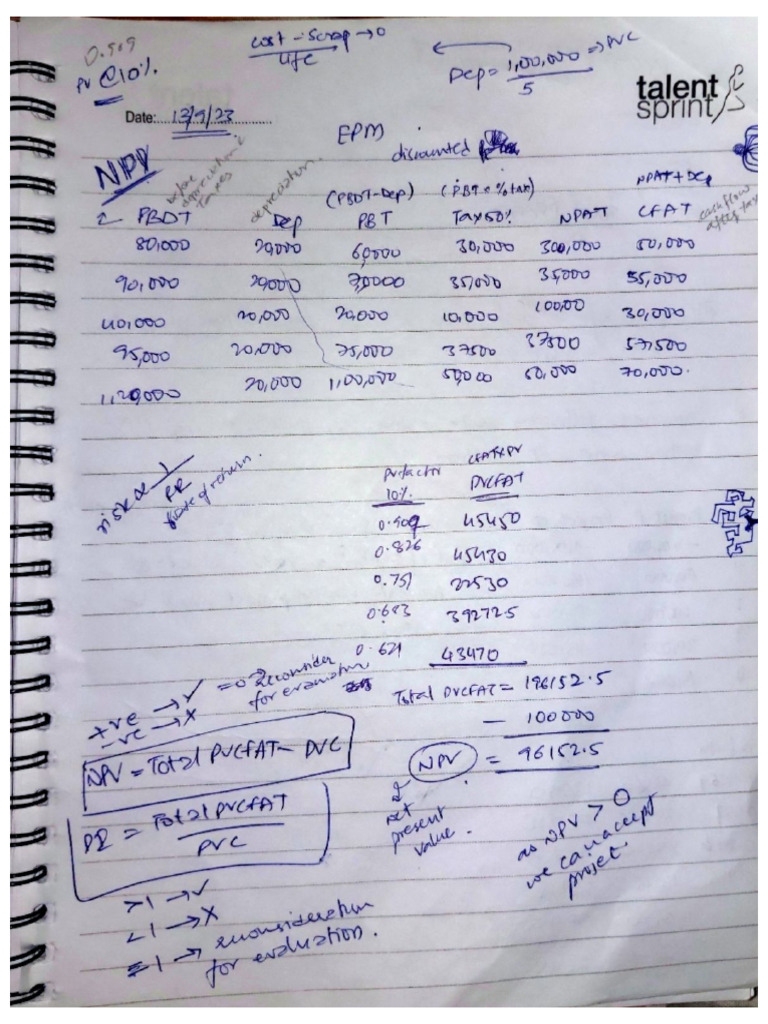 0.909
cost - scrap → 0
life
PV @10%.
Dep = 1,00,000 ⇒ PVC
5
talent
sprint
Date: 13/9/23
EPM
NPV
discounted
before depreciation & Taxes
depreciation.
(PBDT-Dep) (PBT * % tax) NPAT + Dep
PBDT Dep PBT Tax 50% NPAT CFAT
cashflow after tax
80,000 20,000 60,000 30,000 300,000 50,000
90,000 20,000 70000 35,000 35000 55,000
40,000 20,000 20,000 10,000 10000 30,000
95,000 20,000 75,000 37500 37500 57,500
1,20,000 20,000 1,00,000 50,000 50,000 70,000.
risk ∝ 1
PR
rate of return.
PV factor CFAT*PV
10% PVCFAT
0.909 45450
0.826 45430
0.751 22530
0.683 39272.5
0.621 43470
Total PVCFAT = 196152.5
- 100000
NPV = 96152.5
+ve → ✓
-ve → X
= 0 → Reconsider
for evaluation
NPV = Total PVCFAT - PVC
PR = Total PVCFAT
PVC
net
present
value.
as NPV > 0
we can accept
projet.
>1 → ✓
<1 → X
=1 → reconsideration
for evaluation.